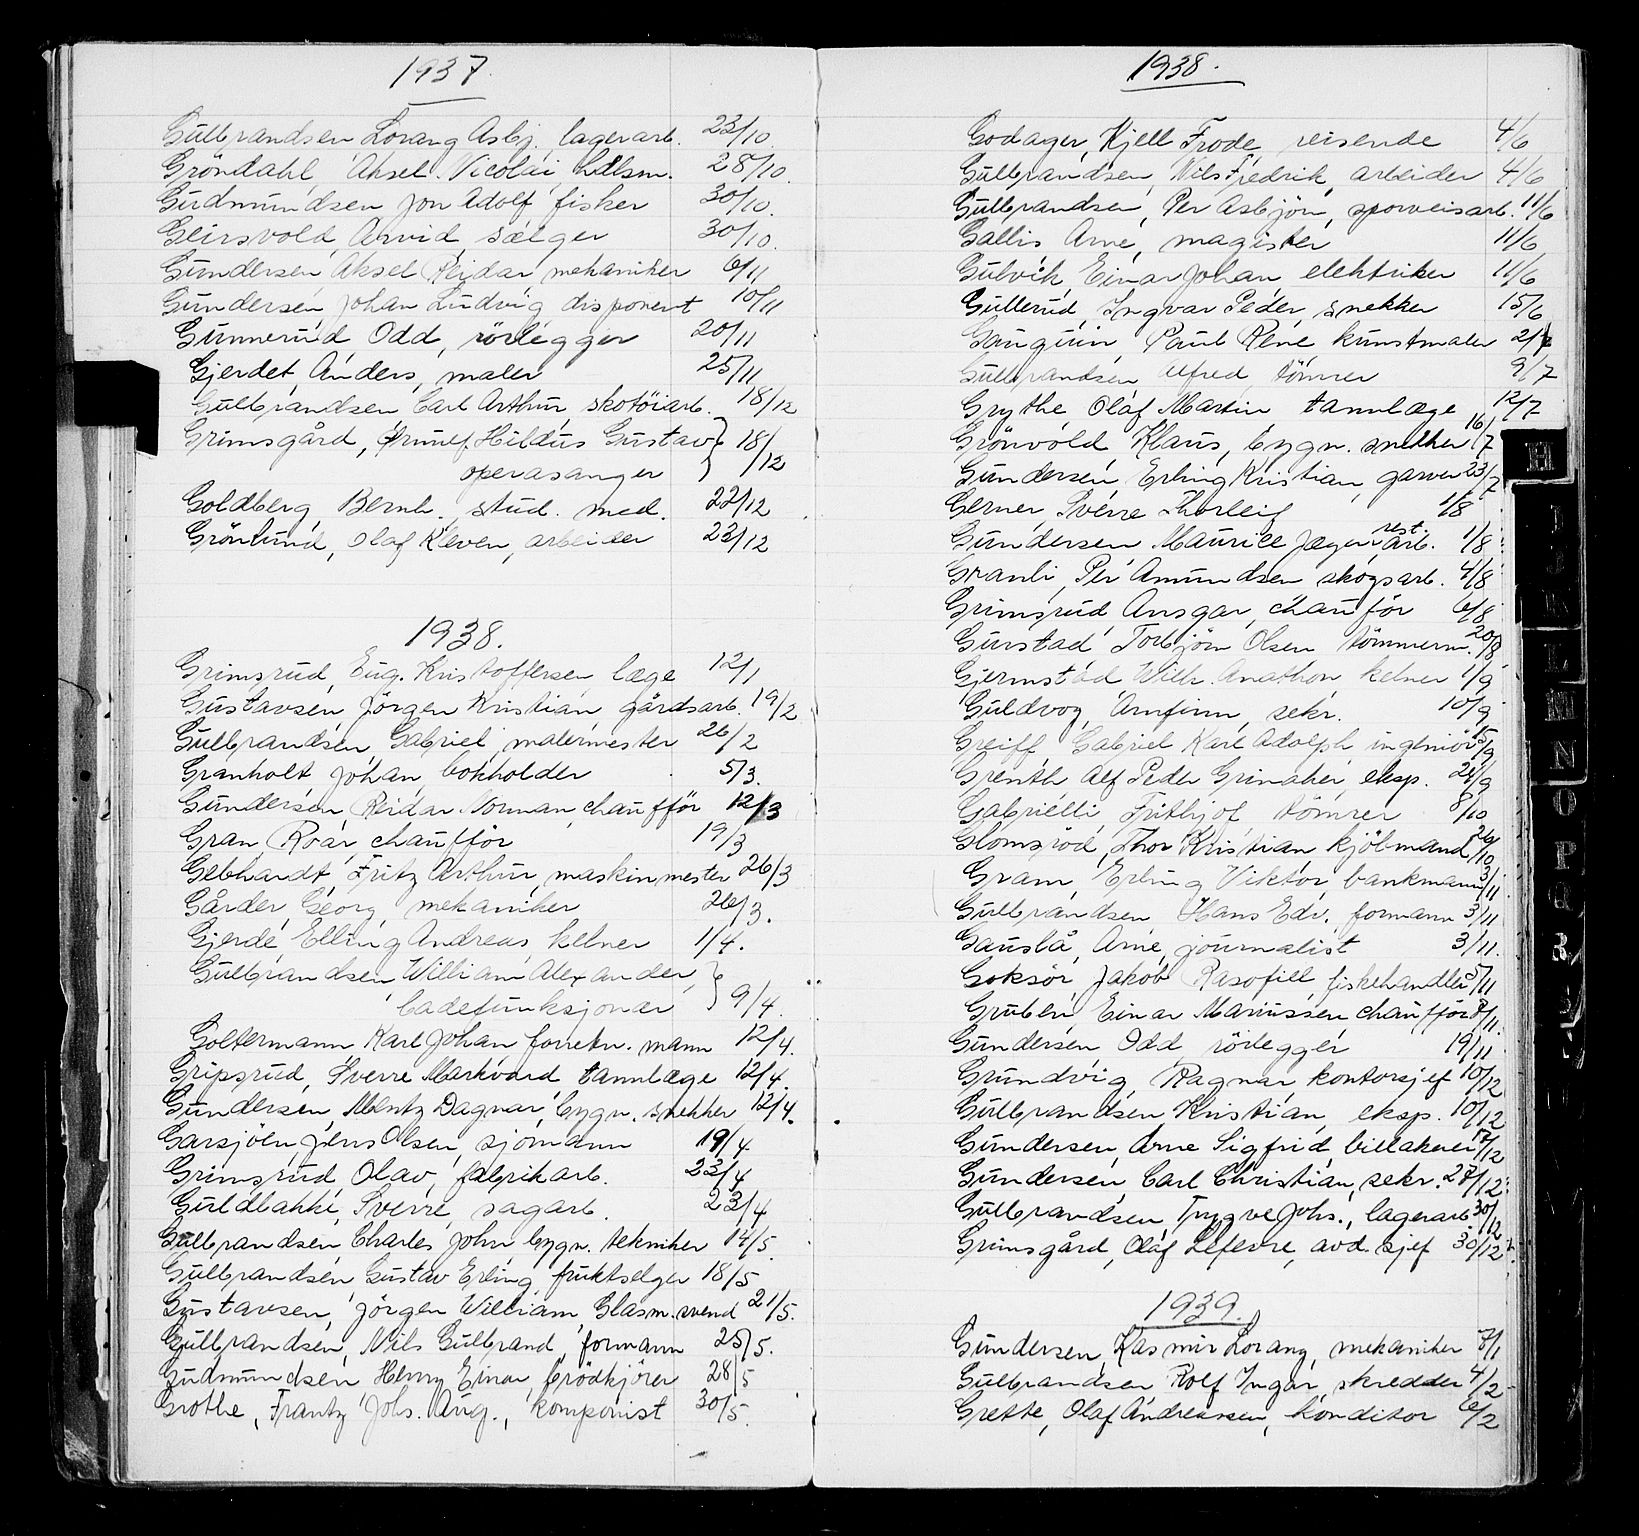 1937.
Gulbrandsen, Lorang Asbj. lagerarb. 23/10.
Gröndahl, Aksel Nicolai hdlsm. 28/10.
Gudmundsen Jon Adolf, fisker 30/10.
Geirsvold, Arvid, sælger 30/10.
Gundersen, Aksel Reidar, mekaniker 6/11
Gundersen, Johan Ludvig disponent 10/11
Gunnerud Odd, rörlegger 20/11
Gjerdet, Anders, maler 25/11
Gulbrandsen Carl Arthur skotöiarb. 18/12
Grimsgård, Hildus Gustav 18/12
operasanger
Goldberg, Bernh. stud. med. 22/12
Grönlund, Olaf Kleven, arbeider 23/12
1938.
Grimsrud, Eug. Kristoffersen læge 12/1
Gustavsen, Jörgen Kristian gårdsarb. 19/2
Gulbrandsen, Gabriel, malermester 26/2
Granholt Johan bokholder 5/3.
Gundersen, Reidar Norman, chaufför 12/3
Gran Roar chaufför 19/3
Gebhardt, Fritz Arthur, maskinmester 26/3
Gårder, Georg, mekaniker 26/3.
Gjerde, Elling Andreas, kelner 1/4.
Gulbrandsen William Alexander,
badefunksjonær 9/4.
Goltermann Karl Johan forretn. mann 12/4.
Gripsrud, Sverre Markvard tannlæge 12/4.
Gundersen, Mentz Dagnar, bygn. snekker 12/4.
Garsjöen, Jens Olsen, sjömann 19/4
Grimsrud, Olav, fabrikarb. 23/4
Guldbakke, Sverre, sagarb. 23/4
Gulbrandsen, Charles John bygn. tekniker 14/5.
Gulbrandsen, Gustav Erling, fruktselger 18/5
Gustavsen, Jörgen William, Glasm. svend 21/5.
Gulbrandsen, Nils Gulbrand, formann 25/5.
Gudmundsen, Henry Einar, brödkjörer 28/5
Grothe, Frantz Johs. Aug., komponist 30/5.
1938.
Godager, Kjell Frode, reisende 4/6
Gulbrandsen, Nils Fredrik, arbeider 4/6
Gulbrandsen, Per Asbjörn, sporveisarb. 11/6
Gallis, Arne, magister 11/6
Gulvik, Einar Johan, elektriker 11/6
Gullerud, Ingvar Peder, snekker 15/6
Gauguin, Paul Rene kunstmaler 2/7
Gulbrandsen, Alfred, tömrer 9/7
Grythe, Olaf Martin tannlæge 12/7
Grönvold Klaus, bygn. snekker 16/7
Gundersen, Erling Kristian, garver 23/7
Gerner, Sverre Thorleif 1/8
Gundersen Maurice Jæger rest. arb. 1/8
Granli, Per Amundsen skogsarb. 4/8
Grimsrud, Ansgar, chaufför 6/8
Gurstad, Torbjörn Olsen tömmerm. 20/8
Gjermstad Wilh. Anathon kelner 1/9
Guldvog, Arnfinn, sekr. 10/9
Greiff Gabriel Karl Adolph, ingeniör 15/9
Grenth Alf Peder Grinaker, eksp. 24/9
Gabrielli, Frithjof tömrer 8/10
Glomsröd, Thor Kristian kjöbmand 26/10
Gram, Erling Viktor, bankmann 3/11
Gulbrandsen Hans Edv. formann 3/11
Gauslå, Arne, journalist 3/11.
Goksör Jakob Rasofill fiskehandler 5/11
Gruben, Einar Mariussen chaufför 8/11.
Gundersen Odd, rörlegger 19/11
Grundvig, Ragnar, kontorsjef 10/12
Gulbrandsen, Kristian, eksp. 10/12
Gundersen, Arne Sigfrid, billakerer 17/12
Gundersen, Carl Christian, sekr. 27/12
Gulbrandsen, Trygve Johs., lagerarb. 30/12
Grimsgård, Olaf Lefevre, avd. sjef 30/12
1939.
Gundersen, Kasmir Lorang, mekaniker 7/1
Gulbrandsen, Rolf Ingar, skredder 4/2
Grette, Olaf Andreassen, konditor 6/2
H
I
J
K
L
M
N
O
P
Q
R